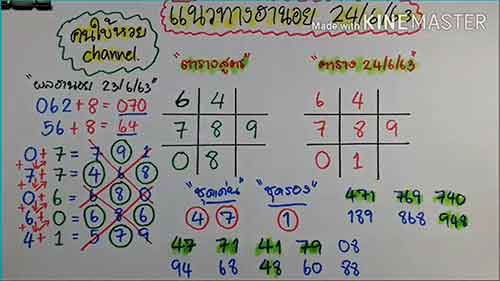 Made with KINEMASTER
แนวทางฮานอย 24/6/63
คนใบ้หวย
channel.
"ผลฮานอย 23/6/63"
062 + 8 = 070
56 + 8 = 64
0 + 7 = 7 9 1
7 + 7 = 4 6 8
0 + 6 = 6 8 0
6 + 0 = 6 8 6
4 + 1 = 5 7 9
"ตารางสูตร"
6 4
7 8 9
0 8
"ตาราง 24/6/63"
6 4
7 8 9
0 1
"ชุดเด่น" "ชุดรอง"
4 7 1
471 769 740
189 868 948
47 71 41 79 08
94 68 48 60 88